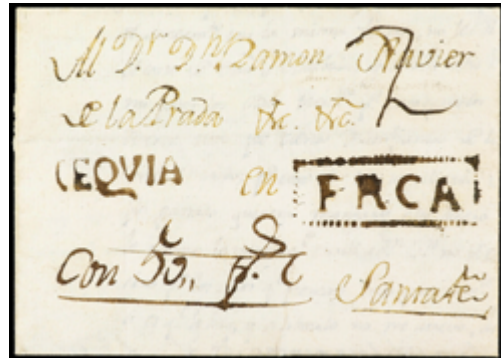 Al D.r D.n Ramon Xavier
de la Prada &c. &c.
EQVIA en FRCA
Con
Santa fe